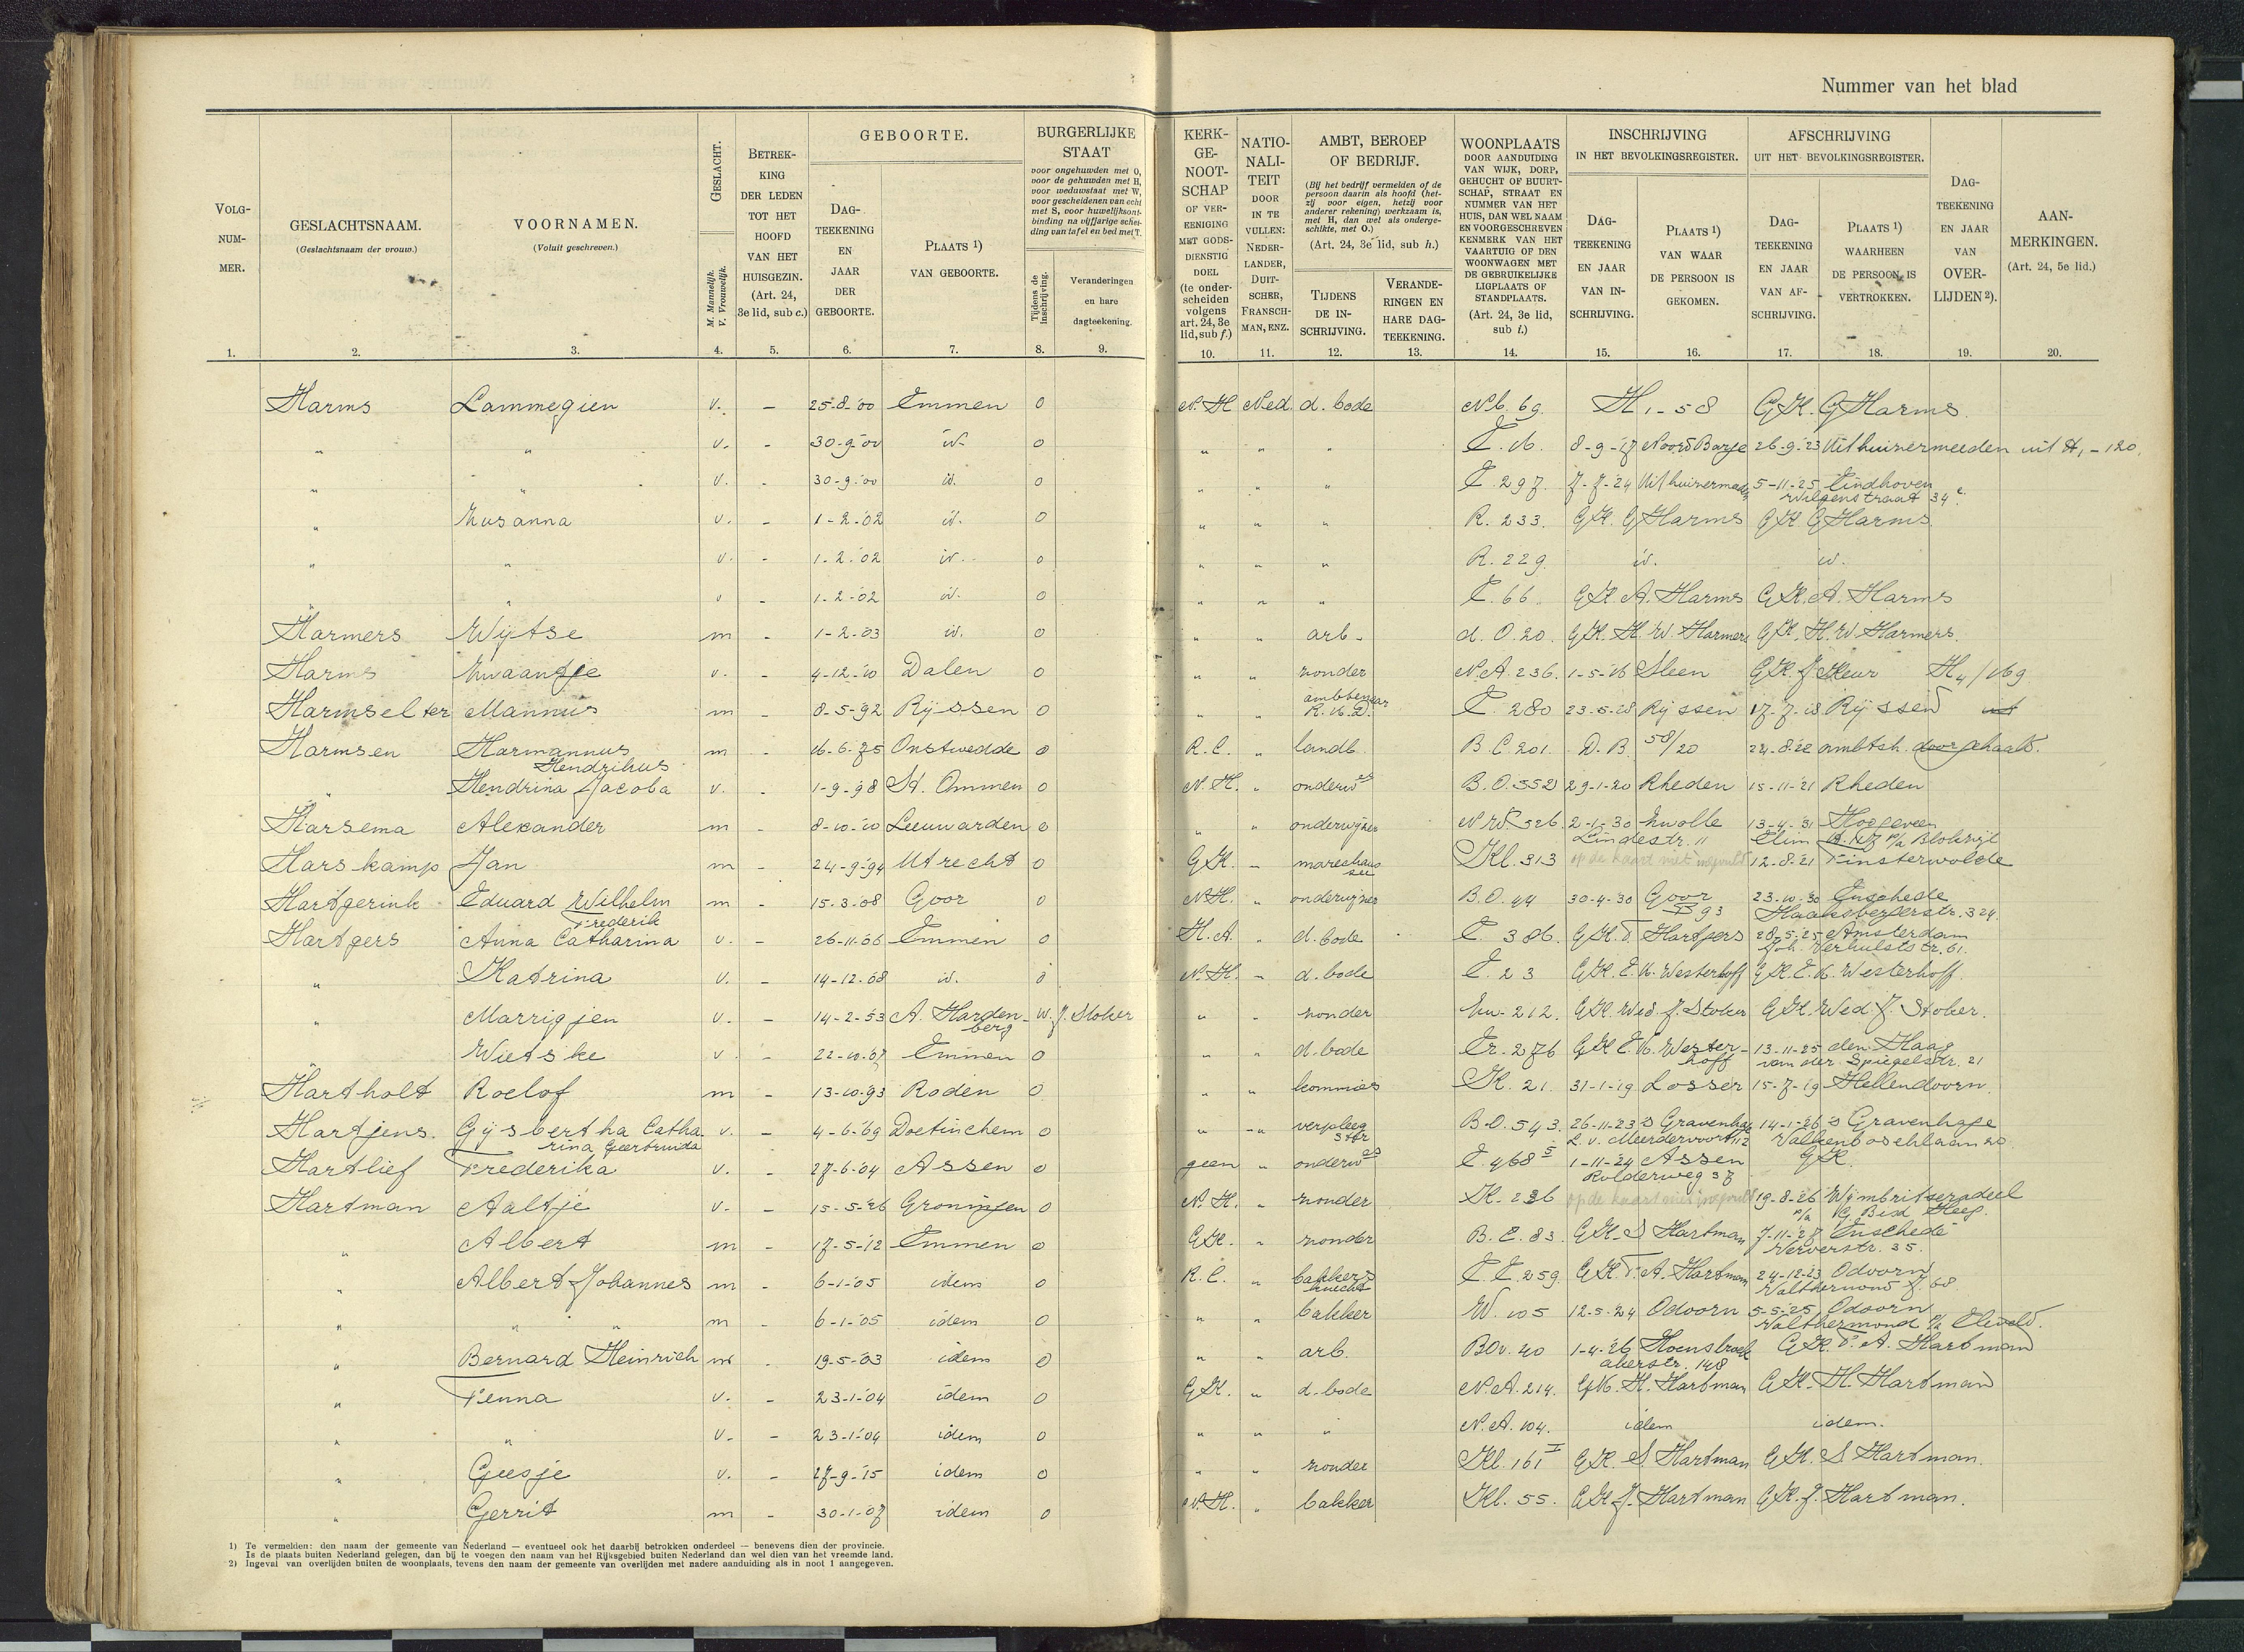 Nummer van het blad
VOLG-NUM-MER.
GESLACHTSNAAM.
(Geslachtsnaam der vrouw.)
VOORNAMEN.
(Voluit geschreven.)
GESLACHT.
M. Mannelijk. V. Vrouwelijk.
BETREK-KING DER LEDEN TOT HET HOOFD VAN HET HUISGEZIN. (Art. 24, 3e lid, sub c.)
GEBOORTE.
DAG-TEEKENING EN JAAR DER GEBOORTE.
PLAATS 1) VAN GEBOORTE.
BURGERLIJKE STAAT
voor ongehuwden met O, voor de gehuwden met H, voor weduwstaat met W, voor gescheidenen van echt met S, voor huwelijksont-binding na vijfjarige schei-ding van tafel en bed met T.
Tijdens de inschrijving.
Veranderingen en hare dagteekening.
KERK-GE-NOOT-SCHAP OF VER-EENIGING MET GODS-DIENSTIG DOEL (te onder-scheiden volgens art. 24, 3e lid, sub f.)
NATIO-NALI-TEIT DOOR IN TE VULLEN: NEDER-LANDER, DUIT-SCHER, FRANSCH-MAN, ENZ.
AMBT, BEROEP OF BEDRIJF.
(Bij het bedrijf vermelden of de persoon daarin als hoofd (het-zij voor eigen, hetzij voor anderer rekening) werkzaam is, met H, dan wel als onderge-schikte, met O.)
(Art. 24, 3e lid, sub h.)
TIJDENS DE IN-SCHRIJVING.
VERANDE-RINGEN EN HARE DAG-TEEKENING.
WOONPLAATS DOOR AANDUIDING VAN WIJK, DORP, GEHUCHT OF BUURT-SCHAP, STRAAT EN NUMMER VAN HET HUIS, DAN WEL NAAM EN VOORGESCHREVEN KENMERK VAN HET VAARTUIG OF DEN WOONWAGEN MET DE GEBRUIKELIJKE LIGPLAATS OF STANDPLAATS. (Art. 24, 3e lid, sub i.)
INSCHRIJVING IN HET BEVOLKINGSREGISTER.
DAG-TEEKENING EN JAAR VAN IN-SCHRIJVING.
PLAATS 1) VAN WAAR DE PERSOON IS GEKOMEN.
AFSCHRIJVING UIT HET BEVOLKINGSREGISTER.
DAG-TEEKENING EN JAAR VAN AF-SCHRIJVING.
PLAATS 1) WAARHEEN DE PERSOON IS VERTROKKEN.
DAG-TEEKENING EN JAAR VAN OVER-LIJDEN 2).
AAN-MERKINGEN. (Art. 24, 5e lid.)
1. 2. 3. 4. 5. 6. 7. 8. 9. 10. 11. 12. 13. 14. 15. 16. 17. 18. 19. 20.
Harms Lammegien v. - 25-8-'00 Emmen O N.H Ned. d. bode Nb. 69. H1-58 G.K. G Harms.
" " v. - 30-9-'00 id. O " " " E. 16. 8-9-'17 Noord Barge 26-9-'23 Uithuizermeeden uit H1-120.
" " v. - 30-9-'00 id. O " " " E 297. 7-7-'24 Uithuizermeeden 5-11-25 Eindhoven
Wilgenstraat 34
" Zusanna v. - 1-2-'02 id. O " " " R. 233. G.K. G Harms G.K. G Harms
" " v. - 1-2-'02 id. O " " " R. 229. id. id.
" " v - 1-2-'02 id. O " " " E. 66. G.K A. Harms G.K. A. Harms
Harmers Wijtse m - 1-2-'03 id. O " " arb. d. O. 20. G.K. H.W. Harmers G.K. H.W. Harmers.
Harms Zwaantje v. - 4-12-'10 Dalen O " " zonder N.A. 236. 1-5-'16 Sleen G.K. J Keur H4/169
Harmselter Mannus m - 8-5-'92 Rijssen O " " ambtenaar
E 280 23-5-'18 Rijssen 17-7-'18 Rijssen
Harmsen Harmannus m - 16-6-'75 Onstwedde O R.C. " landb. B.C. 201. D.B. 58/20 24-8-'22 ambtsh. doorgehaald.
Hendrikus
" Hendrina Jacoba v. - 1-9-'98 St. Ommen O N.H. " onderw. B.O. 552 29-1-20 Rheden 15-11-'21 Rheden
Harsema Alexander m - 8-10-'10 Leeuwarden O " " onderwijzer N.W. 526. 2-1-'30 Zwolle 13-4-'31 Hoogeveen
Lindestr. 11 Elim p/a Blokzijl
Harskamp Jan m - 24-9-'94 Utrecht O G.K. " marechaussee Kl. 313 op de kaart niet ingevuld 12-8-'21 Finsterwolde
Hartgerink Eduard Wilhelm m - 15-3-'08 Goor O N.H. " onderwijzer B.O. 44 30-4-30 Goor 23-10-'30 Enschede
Frederik 93 Haaksbergerstr. 324.
Hartgers Anna Catharina v. - 26-11-'06 Emmen O H.A. " d. bode E. 386. G.K. F. Hartgers 28-5-'25 Amsterdam
Joh. Verhulststr. 61.
" Katrina v. - 14-12-'08 id. O N.H. " d. bode E. 23 G.K. E.K. Westerhoff G.K. E.K. Westerhoff.
" Marrigjen v. - 14-2-'53 A. Hardenberg W. J. Stoker " " zonder Zw. 212. G.K. Wed. J. Stoker G.K. Wed J. Stoker.
" Wietske v. - 22-10-'07 Emmen O " " d. bode Er. 276 G.K E.K. Westerhoff 13-11-25 den Haag
van der Spiegelstr. 21
Hartholt Roelof m - 13-10-'93 Roden O " " kommies K. 21. 31-1-'19 Losser 15-7-'19 Hellendoorn
Hartjens. Gijsbertha Catha- v. - 4-6-'69 Doetinchem O " " verpleegster B.O. 543. 26-11-'23 's Gravenhage 14-1-'26 's Gravenhage
rina Geertruida L. v. Meerdervoort 112 Valkenboschlaan 20.
Hartlief Frederika v. - 27-6-'04 Assen O geen " onderw. E. 468 5 1-11-'24 Assen G.K.
Rolderweg 37
Hartman Aaltje v. - 15-5-'26 Groningen O N.H. " zonder K. 236 op de kaart niet ingevuld 19-8-26 Wijmbritseradeel
p/a Heeg.
" Albert m - 17-5-'12 Emmen O G.K. " zonder B.E. 83. G.K. S Hartman 7-11-'27 Enschede
Ververstr. 35.
" Albert Johannes m - 6-1-'05 idem O R.C. " bakkersknecht E.E. 259. G.K. F.A. Hartman 24-12-23 Odoorn
" " " m - 6-1-'05 idem O " " bakker W. 105 12-5-'24 Odoorn 5-5-'25 Odoorn
Valthermond p/a
" Bernard Heinrich m - 19-5-'03 idem O " " arb. BOv. 40 1-4-'26 Hoensbroek G.K. F.A. Hartman
akerstr. 148
" Fenna v. - 23-1-'04 idem O G.K. " d. bode N.A. 214. G.K. H. Hartman G.K. H. Hartman
" " v. - 23-1-'04 idem O " " " N.A. 104. idem idem.
" Geesje v. - 27-9-'15 idem O " " zonder Kl. 161 I G.K. S Hartman G.K. S Hartman.
" Gerrit m - 30-1-'07 idem O N.H. " bakker Kl. 55. G.K. J. Hartman G.K. J. Hartman.
1) Te vermelden: den naam der gemeente van Nederland — eventueel ook het daarbij betrokken onderdeel — benevens dien der provincie.
Is de plaats buiten Nederland gelegen, dan bij te voegen den naam van het Rijksgebied buiten Nederland dan wel dien van het vreemde land.
2) Ingeval van overlijden buiten de woonplaats, tevens den naam der gemeente van overlijden met nadere aanduiding als in noot 1 aangegeven.